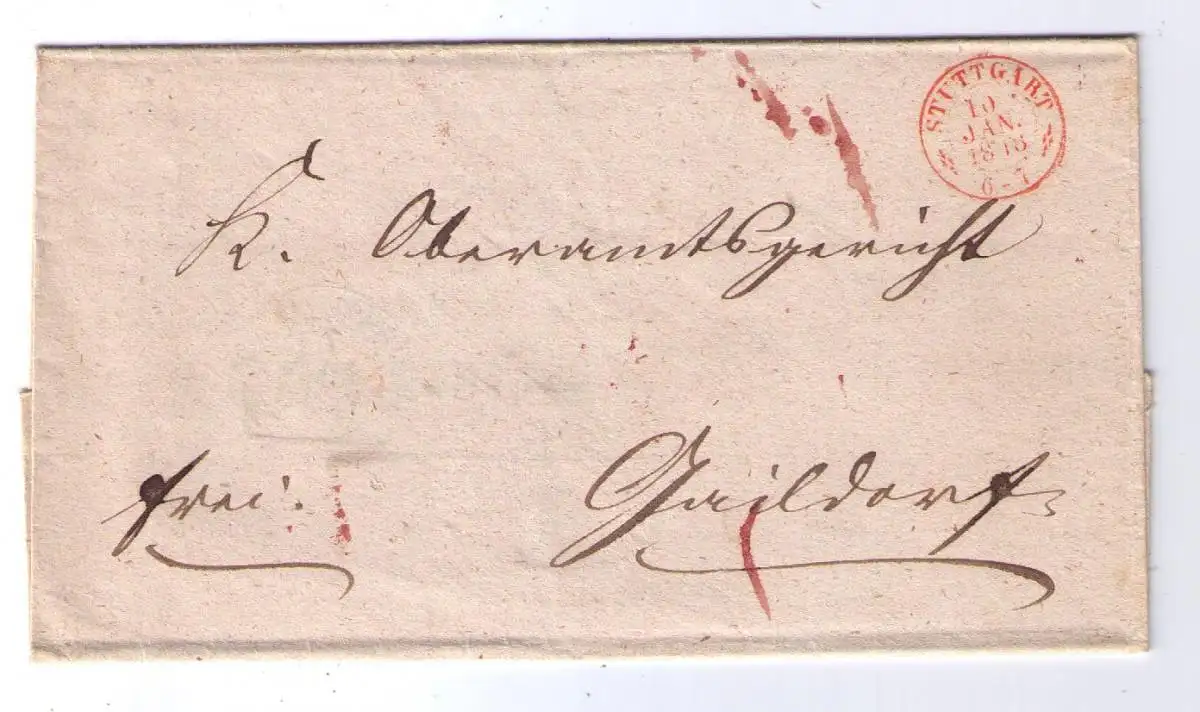 STUTTGART
JAN.
6-7
K. Oberamtsgericht
frei.
Gaildorf